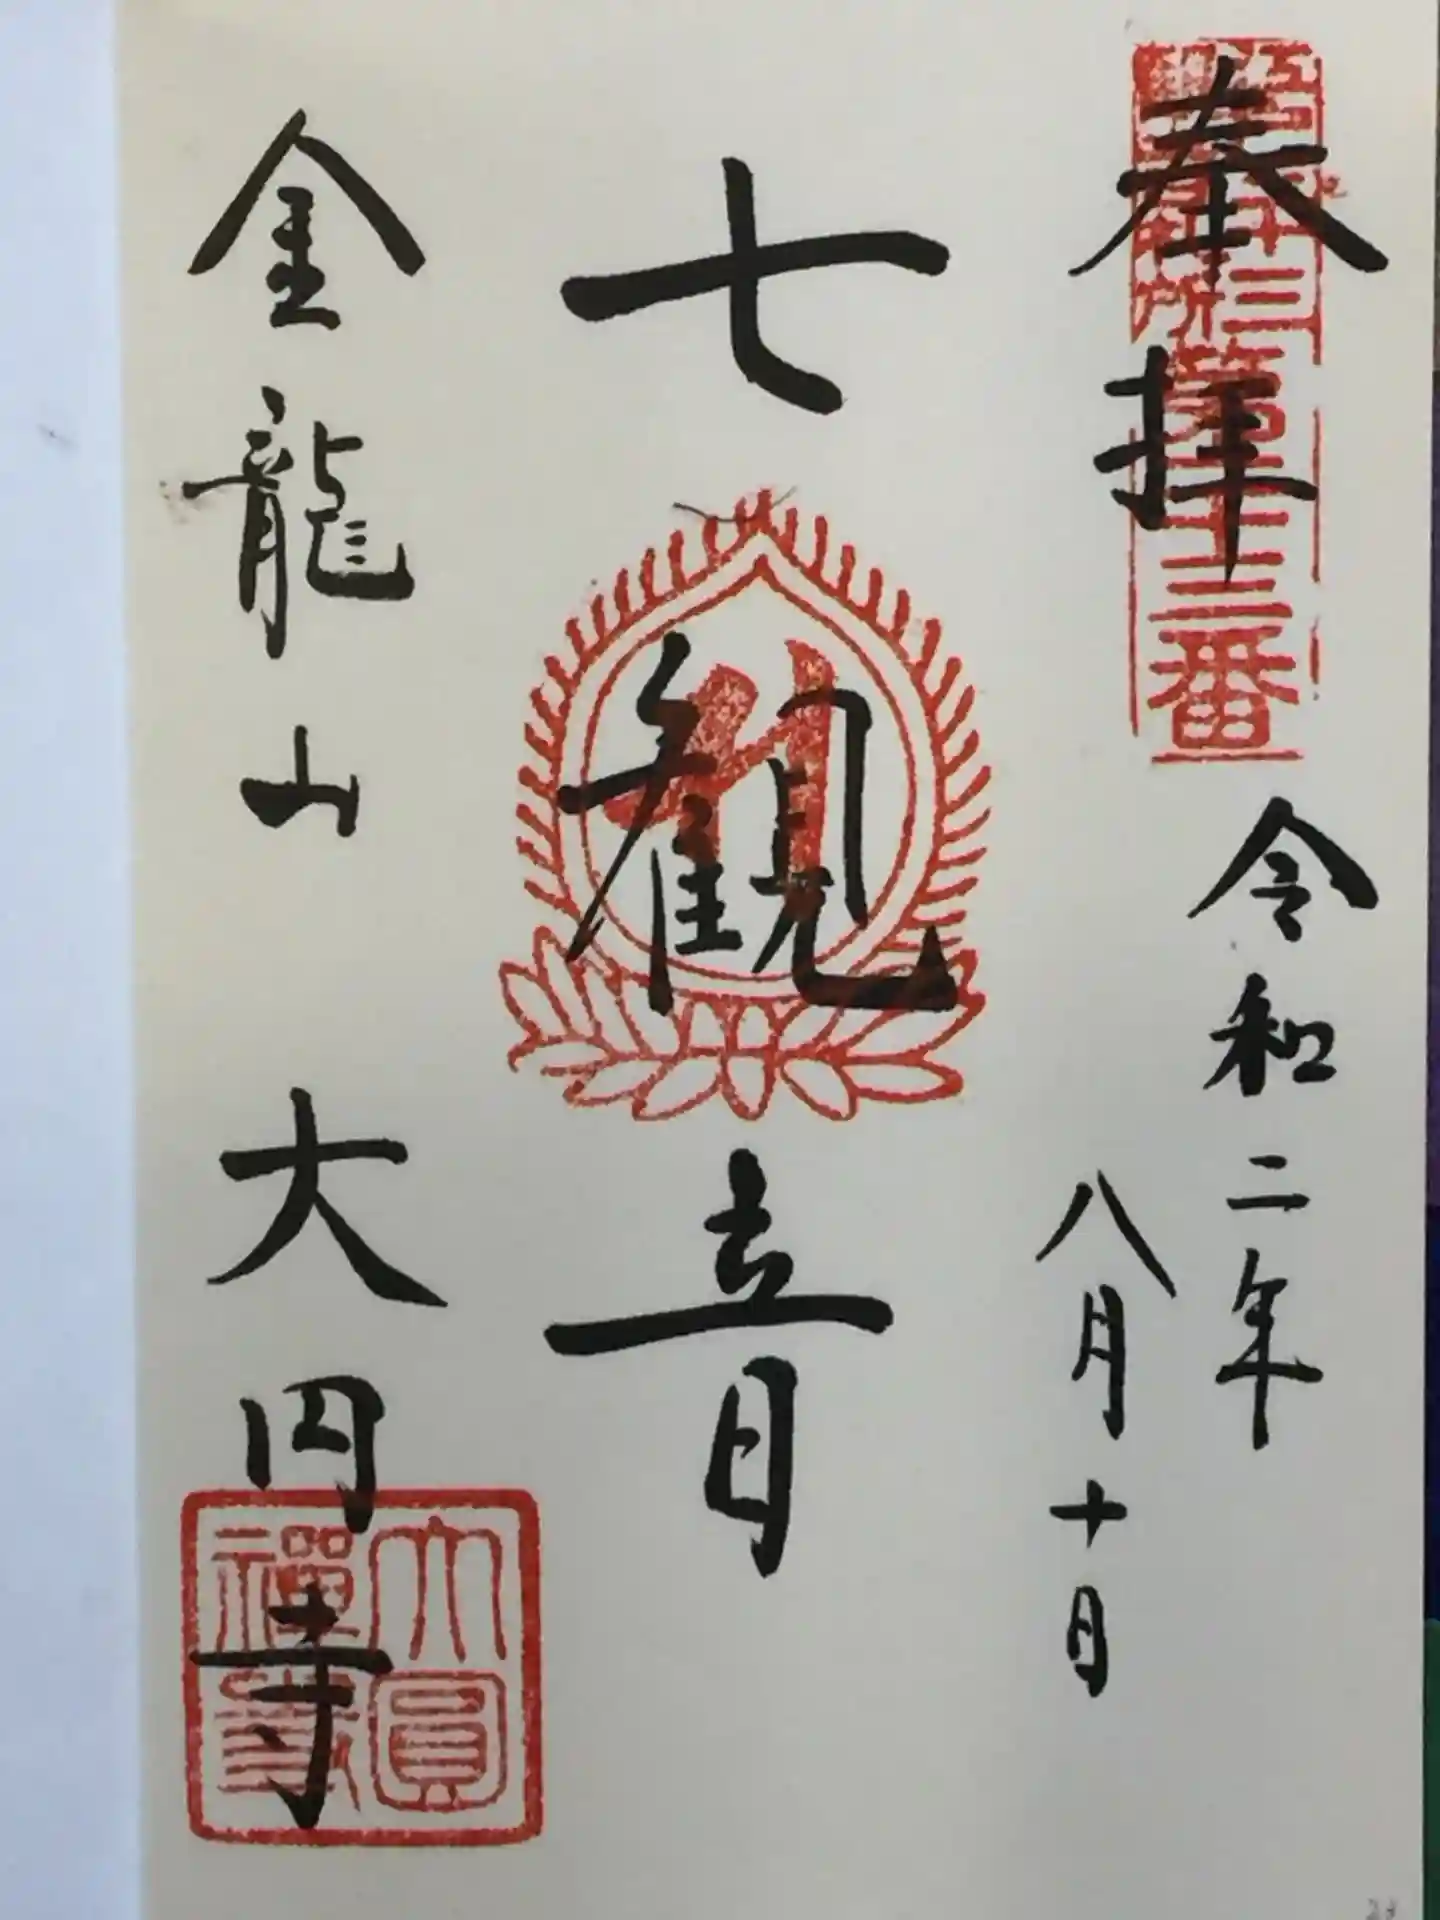 奉拝
第十三番
令和二年
八月十日
七観音
金龍山 大円寺
大圓
禅寺